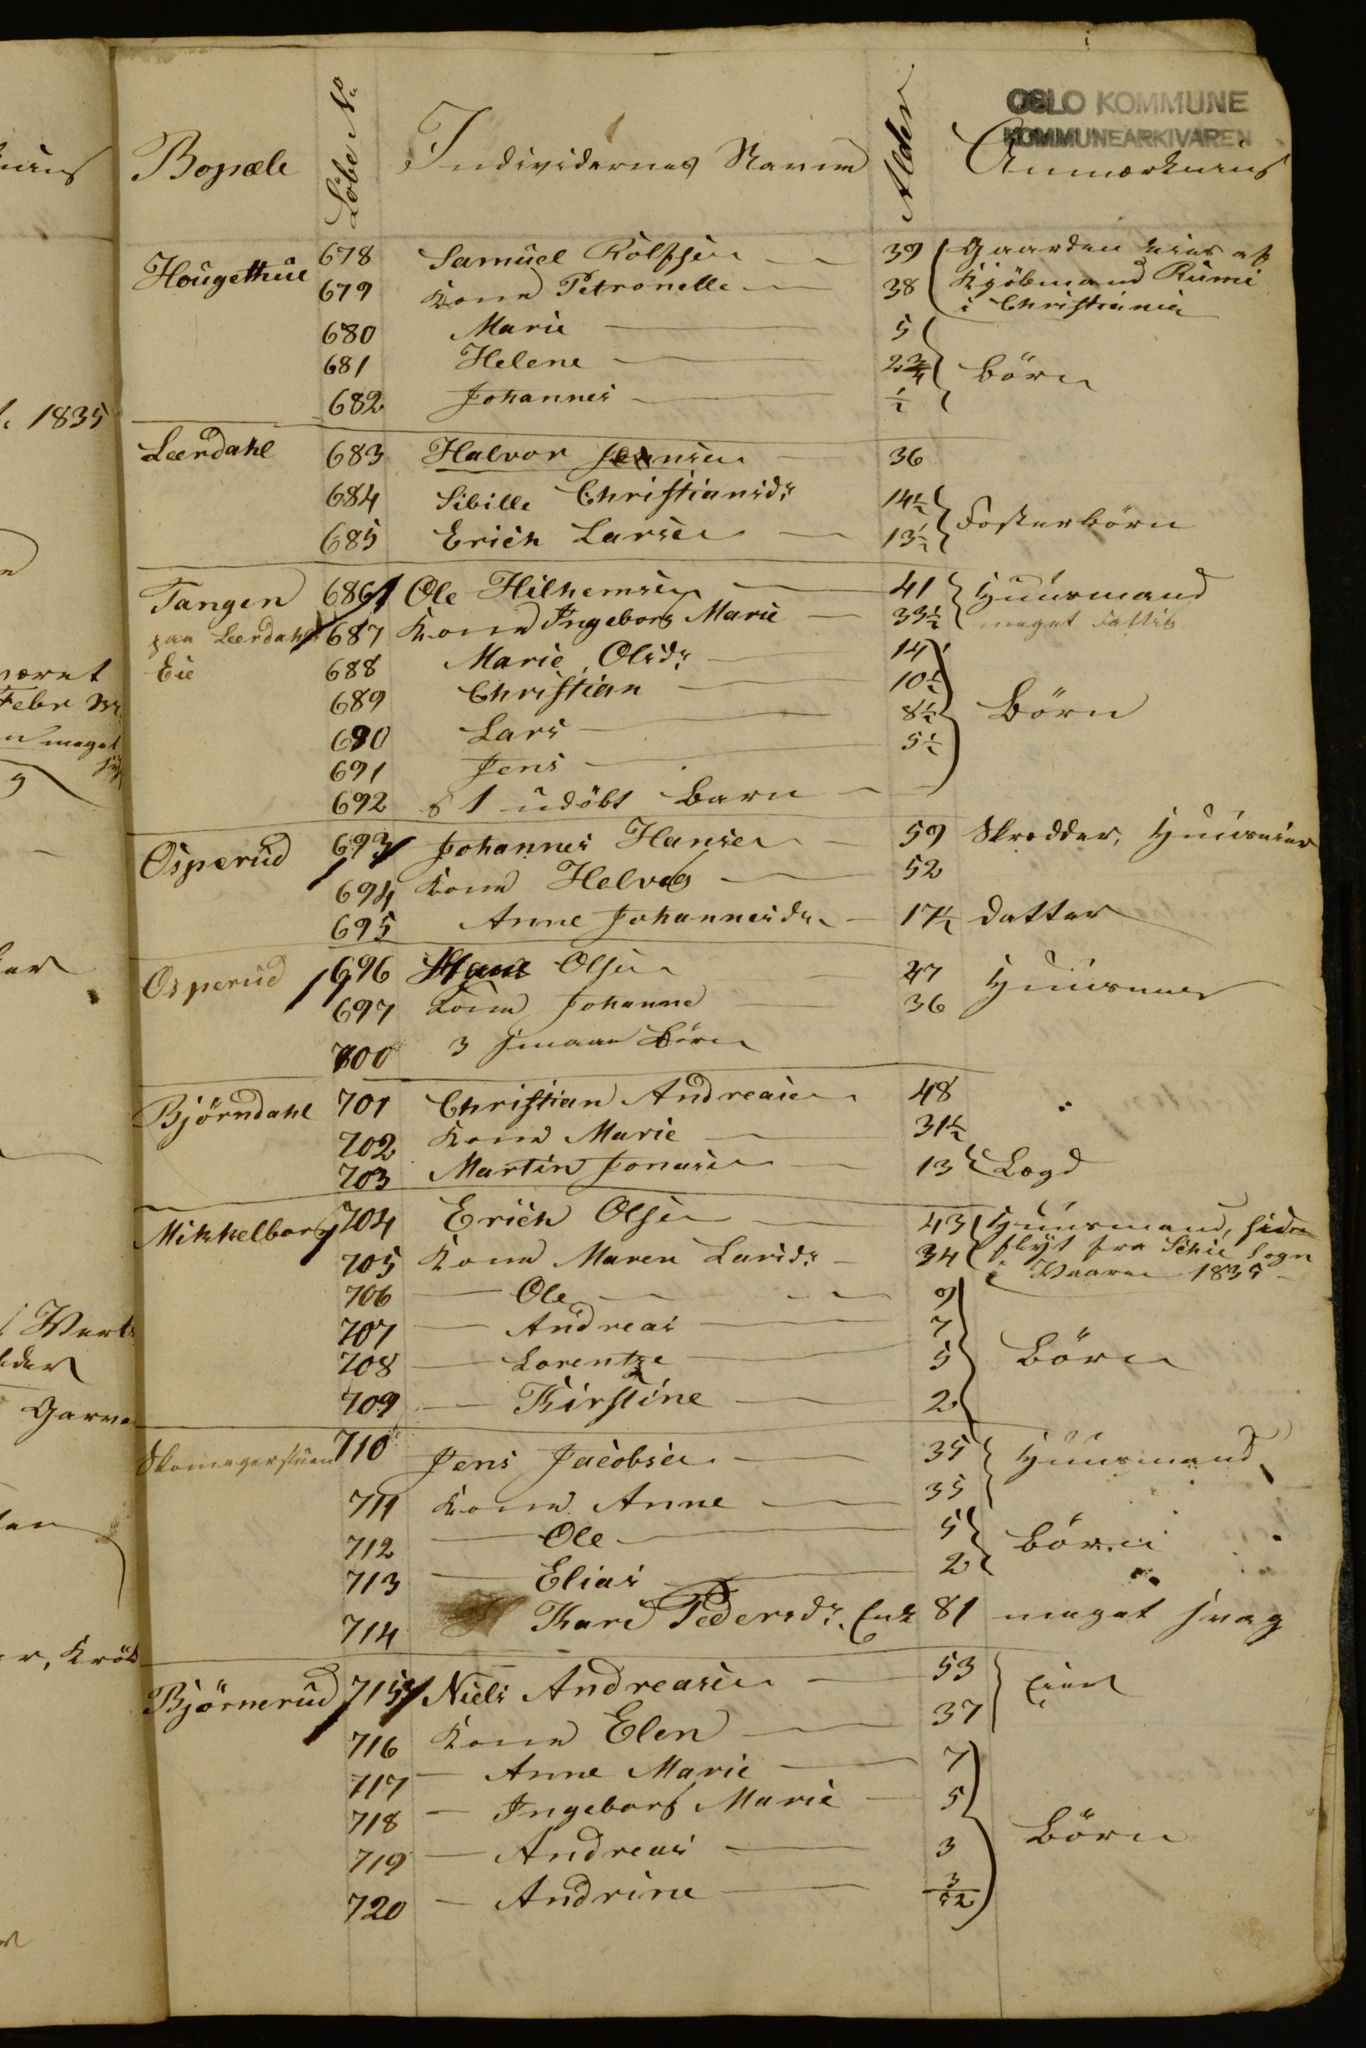 OSLO KOMMUNE
KOMMUNEARKIVAREN
Bopæle Löbe No Individernes Navne Alder Anmærkning
Hougethue 678 Samuel Rolfsen 39 Gaarden eies af
679 Kone Petronelle 38 Kjöbmand
i Christiania
680 Marie 5
681 Helene 2 3/4 Börn
682 Johannes ½
Leerdahl 683 Halvor Jensen 36
684 Sibille Christiansdr 14½
685 Erich Larsen 13½ Fosterbörn
Tangen 686 Ole Hilhemsen 41 Huusmand
paa Leerdahls 687 Kone Ingeborg Marie 33½ meget fattig
Eie 688 Marie Olsdr 14
689 Christian 10½
690 Lars 8½ Börn
691 Jens 5½
692 & 1 udöbt Barn
Osperud 693 Johannes Hansen 59 Skredder, Huuseier
694 Kone Helvig 52
695 Anne Johannesdr 17½ datter
Osperud 696 Olsen 47
697 Kone Johanne 36
700 3 smaae Börn
Björndahl 701 Christian Andreasen 48
702 Kone Marie 31½
703 Martin Jonasen 13 Lægd
Mikkelborg 704 Erich Olsen 43 Huusmand,
705 Kone Maren Larsdr 34 flyt fra Schie Sogn
i Vaaren 1835
706 Ole 9
707 Andreas 7
708 Lorentze 5 Börn
709 Kirstine 2
Skomagerstuen 710 Jens Jacobsen 35 Huusmand
711 Kone Anne 35
712 Ole 5 Börn
713 Elias 2
714 Kari Pedersdr. Enk 81 meget svag
Björnerud 715 Niels Andreasen 53 Eier
716 Kone Elen 37
717 Anne Marie 7
718 Ingeborg Marie 5
719 Andreas 3 Börn
720 Andrine 3/52
1835